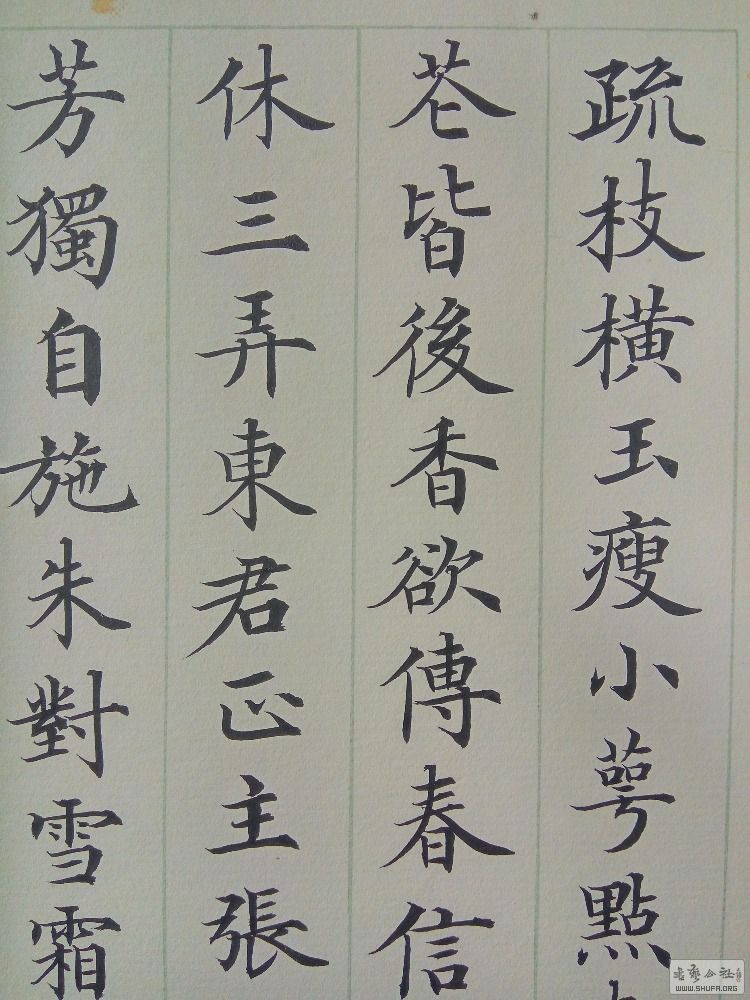 疏枝橫玉瘦小萼點
花皆後香欲傳春信
休三弄東君正主張
芳獨自施朱對雪霜
WWW.SHUFA.ORG